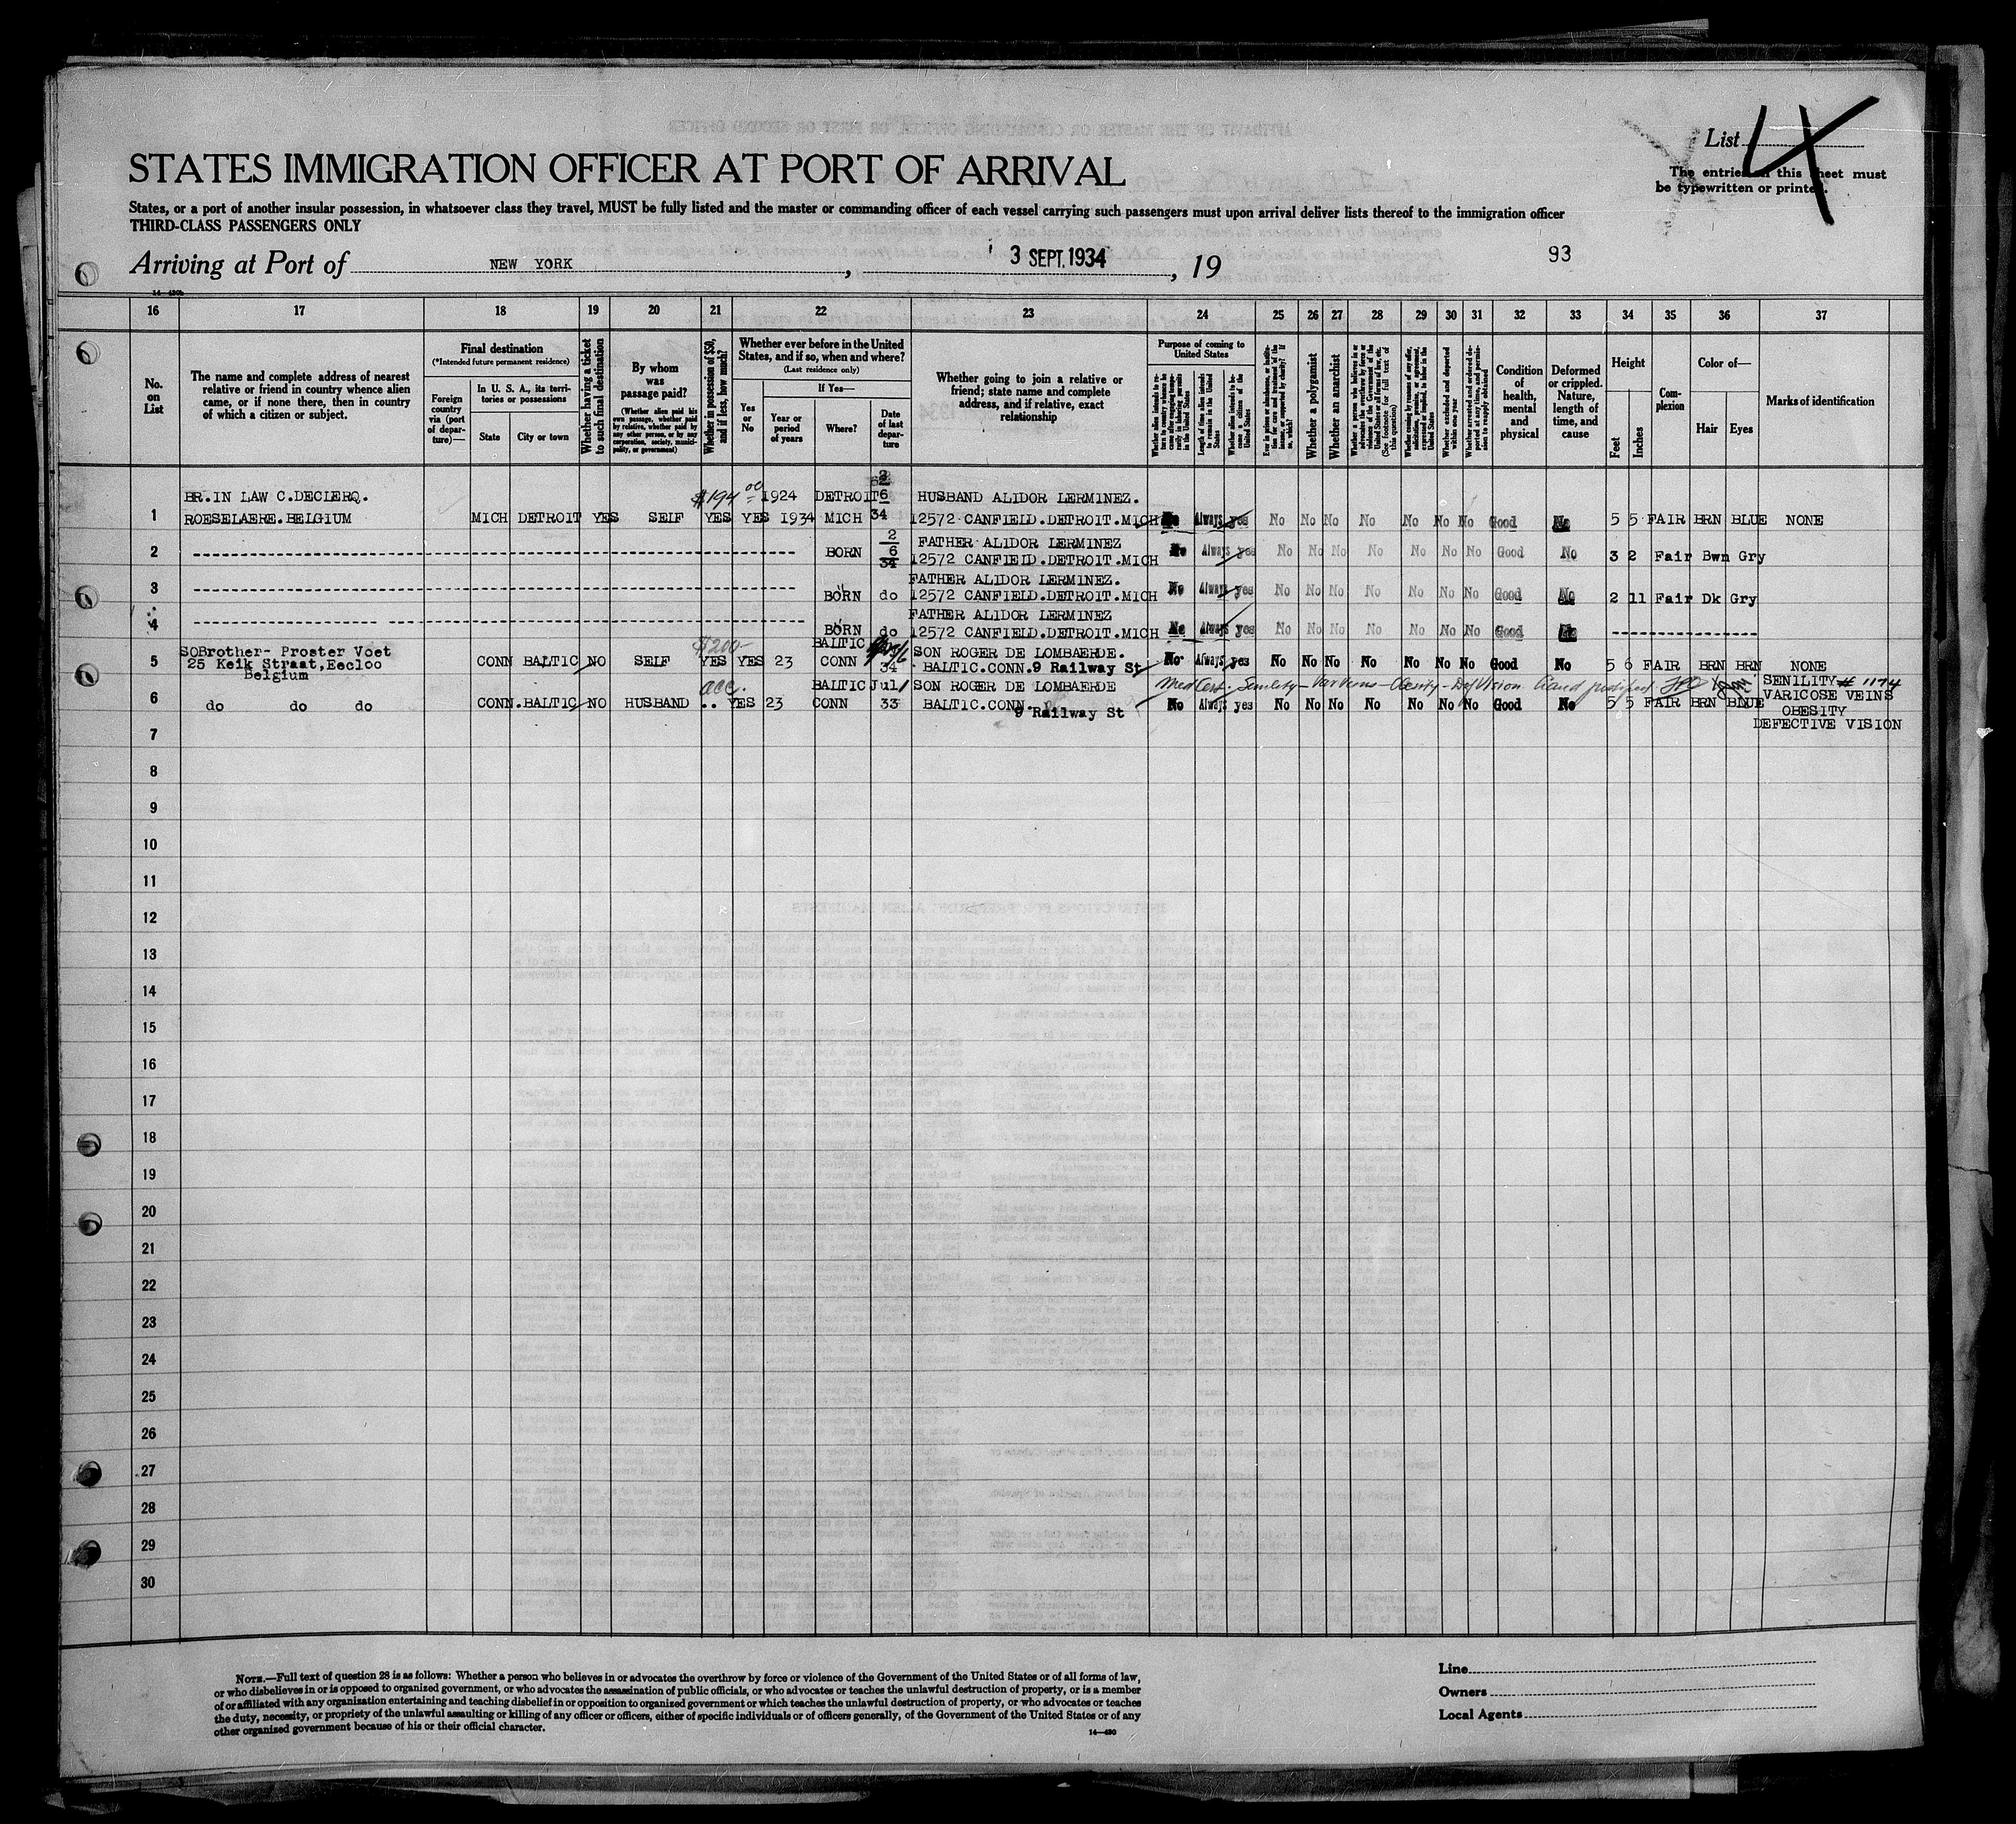 List 4
STATES IMMIGRATION OFFICER AT PORT OF ARRIVAL
The entries on this sheet must
be typewritten or printed.
States, or a port of another insular possession, in whatsoever class they travel, MUST be fully listed and the master or commanding officer of each vessel carrying such passengers must upon arrival deliver lists thereof to the immigration officer
THIRD-CLASS PASSENGERS ONLY
Arriving at Port of NEW YORK, 3 SEPT. 1934, 19
93
16 17 18 19 20 21 22 23 24 25 26 27 28 29 30 31 32 33 34 35 36 37
No. on List
The name and complete address of nearest relative or friend in country whence alien came, or if none there, then in country of which a citizen or subject.
Final destination
(*Intended future permanent residence)
Foreign country via (port of departure)—
In U. S. A., its territories or possessions
State
City or town
Whether having a ticket to such final destination
By whom was passage paid?
(Whether alien paid his own passage, whether paid by relative, whether paid by any other person, or by any corporation, society, municipality, or government)
Whether in possession of $50, and if less, how much?
Whether ever before in the United States, and if so, when and where?
(Last residence only)
Yes or No
If Yes—
Year or period of years
Where?
Date of last departure
Whether going to join a relative or friend; state name and complete address, and if relative, exact relationship
Purpose of coming to United States
Whether alien intends to return to country whence he came after engaging temporarily in laboring pursuits in the United States
Length of time alien intends to remain in the United States
Whether alien intends to become a citizen of the United States
Ever in prison or almshouse, or institution for care and treatment of the insane, or supported by charity? If so, which?
Whether a polygamist
Whether an anarchist
Whether a person who believes in or advocates the overthrow by force or violence of the Government of the United States or all forms of law, etc. (See footnote for full text of this question)
Whether coming by reasons of any offer, solicitation, promise, or agreement, expressed or implied, to labor in the United States
Whether excluded and deported within one year
Whether arrested and ordered deported at any time, and permission to reapply obtained
Condition of health, mental and physical
Deformed or crippled. Nature, length of time, and cause
Height
Feet
Inches
Complexion
Color of—
Hair
Eyes
Marks of identification
BR. IN LAW C.DECLERQ. $194 00 1924 DETROIT 6 HUSBAND ALIDOR LERMINEZ.
1 ROESELAERE.BELGIUM MICH DETROIT YES SELF YES YES 1934 MICH 34 12572 CANFIELD.DETROIT.MICH No Always yes No No No No No No No Good No 5 5 FAIR BRN BLUE NONE
2 FATHER ALIDOR LERMINEZ
2 BORN 6 34 12572 CANFIELD.DETROIT.MICH No Always yes No No No No No No No Good No 3 2 Fair Bwn Gry
FATHER ALIDOR LERMINEZ.
3 BORN do 12572 CANFIELD.DETROIT.MICH No Always yes No No No No No No No Good No 2 11 Fair Dk Gry
FATHER ALIDOR LERMINEZ
4 BORN do 12572 CANFIELD.DETROIT.MICH No Always yes No No No No No No No Good No
SOBrother- Proster Voet $200- BALTIC SON ROGER DE LOMBAERDE.
5 25 Keik Straat,Eecloo CONN BALTIC NO SELF YES YES 23 CONN 34 BALTIC.CONN.9 Railway St No Always yes No No No No No No No Good No 5 6 FAIR BRN BRN NONE
Belgium
acc. BALTIC Jul SON ROGER DE LOMBAERDE Med Cert. Senility - Var Veins - Obesity - Def Vision SENILITY # 1174
6 do do do CONN.BALTIC NO HUSBAND .. YES 23 CONN 33 BALTIC.CONN. No Always yes No No No No No No No Good No 5 5 FAIR BRN BLUE VARICOSE VEINS
9 Railway St OBESITY
DEFECTIVE VISION
7
8
9
10
11
12
13
14
15
16
17
18
19
20
21
22
23
24
25
26
27
28
29
30
NOTE.—Full text of question 28 is as follows: Whether a person who believes in or advocates the overthrow by force or violence of the Government of the United States or of all forms of law,
or who disbelieves in or is opposed to organized government, or who advocates the assassination of public officials, or who advocates or teaches the unlawful destruction of property, or is a member
of or affiliated with any organization entertaining and teaching disbelief in or opposition to organized government or which teaches the unlawful destruction of property, or who advocates or teaches
the duty, necessity, or propriety of the unlawful assaulting or killing of any officer or officers, either of specific individuals or of officers generally, of the Government of the United States or of any
other organized government because of his or their official character.
14—430
Line
Owners
Local Agents